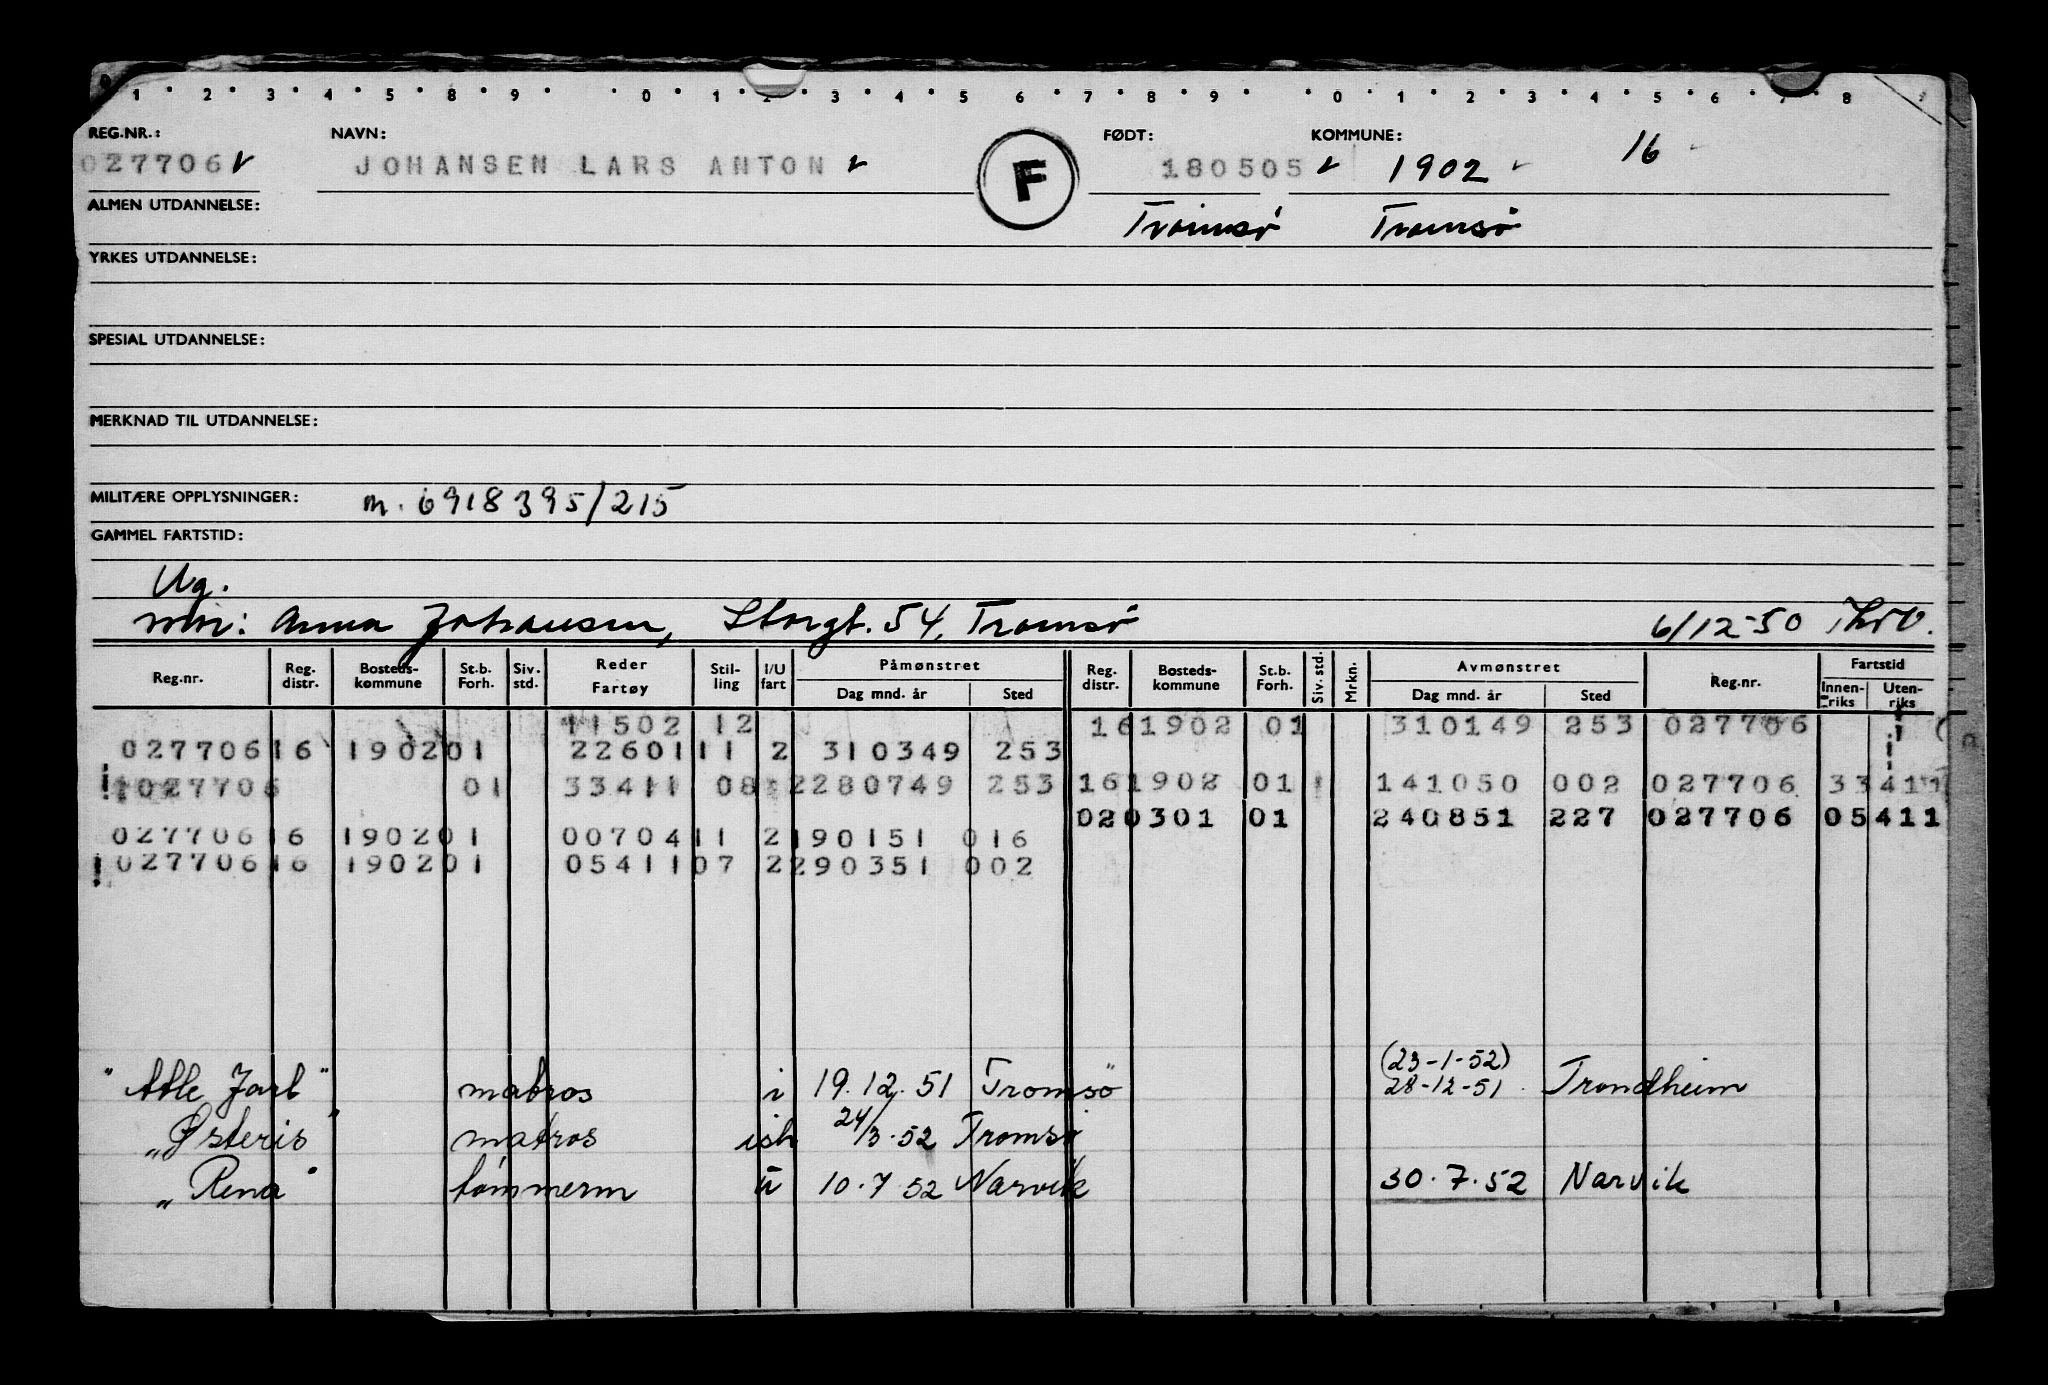 0 1 · 2 · 3 · 4 · 5 · 8 · 9 · · 0 · 1 · 2 · 3 · 4 · 5 · 6 · 7 · 8 · 9 · · 0 · 1 · 2 · 3 · 4 · 5 · 6 · 7 · 8
REG.NR.: NAVN: FØDT: KOMMUNE:
027706 JOHANSEN LARS ANTON F 180505 1902 16
ALMEN UTDANNELSE: Tromsø Tromsø
YRKES UTDANNELSE:
SPESIAL UTDANNELSE:
MERKNAD TIL UTDANNELSE:
MILITÆRE OPPLYSNINGER: m. 6918395/215
GAMMEL FARTSTID:
Ug.
mor: Anna Johansen, Storgt. 54, Tromsø 6/12-50
Reg.nr. Reg. distr. Bosteds-kommune St.b. Forh. Siv. std. Reder Fartøy Stil-ling I/U fart Påmønstret Dag mnd. år Sted Reg. distr. Bosteds-kommune St.b. Forh. Siv. std. Mrkn. Avmønstret Dag mnd. år Sted Reg.nr. Fartstid Innen-riks Uten-riks
11502 12 16 1902 01 310149 253 027706
027706 16 1902 01 22601 11 2 310349 253
! 1027706 01 33411 08 2 280749 253 16 1902 01 141050 002 027706 33411
02 0301 01 240851 227 027706 05411
027706 16 1902 01 00704 11 2 190151 016
! 027706 16 1902 01 05411 07 2 290351 002
(23-1-52)
"Atle Jarl" matros i 19.12.51 Tromsø 28-12-51 Trondheim
"Østeris" matros ish 24/3.52 Tromsø
"Rena" tømmerm u 10.7 52 Narvik 30.7.52 Narvik